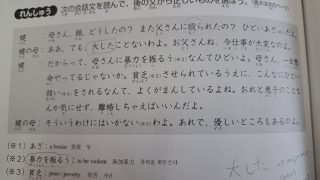 れんしゅう 次の会話文を読んで、後の文から正しいものを選ぼう。
健 : 母さん、顔、どうしたの？ また父さんに殴られたの？ ひどいあざ
健の母 : ああ、でも、大したことないわよ。お父さんね、今仕事が大変なのよ。
健 : だからって、母さんに暴力を振るうなんてひどいよ。母さん、一生懸
命やってるじゃないか。貧乏させられているうえに、こんなにひどい
をされるなんて、よくがまんしているよね。おれと
んか気にせず、離婚しちゃえばいいんだよ。
健の母 : そういうわけにはいかないわよ。あれで、優しいところもあるのよ。
(※1) あざ : a bruise
(※2) 暴力を振るう : to be violent
(※3) 貧乏 : poor / poverty
大した